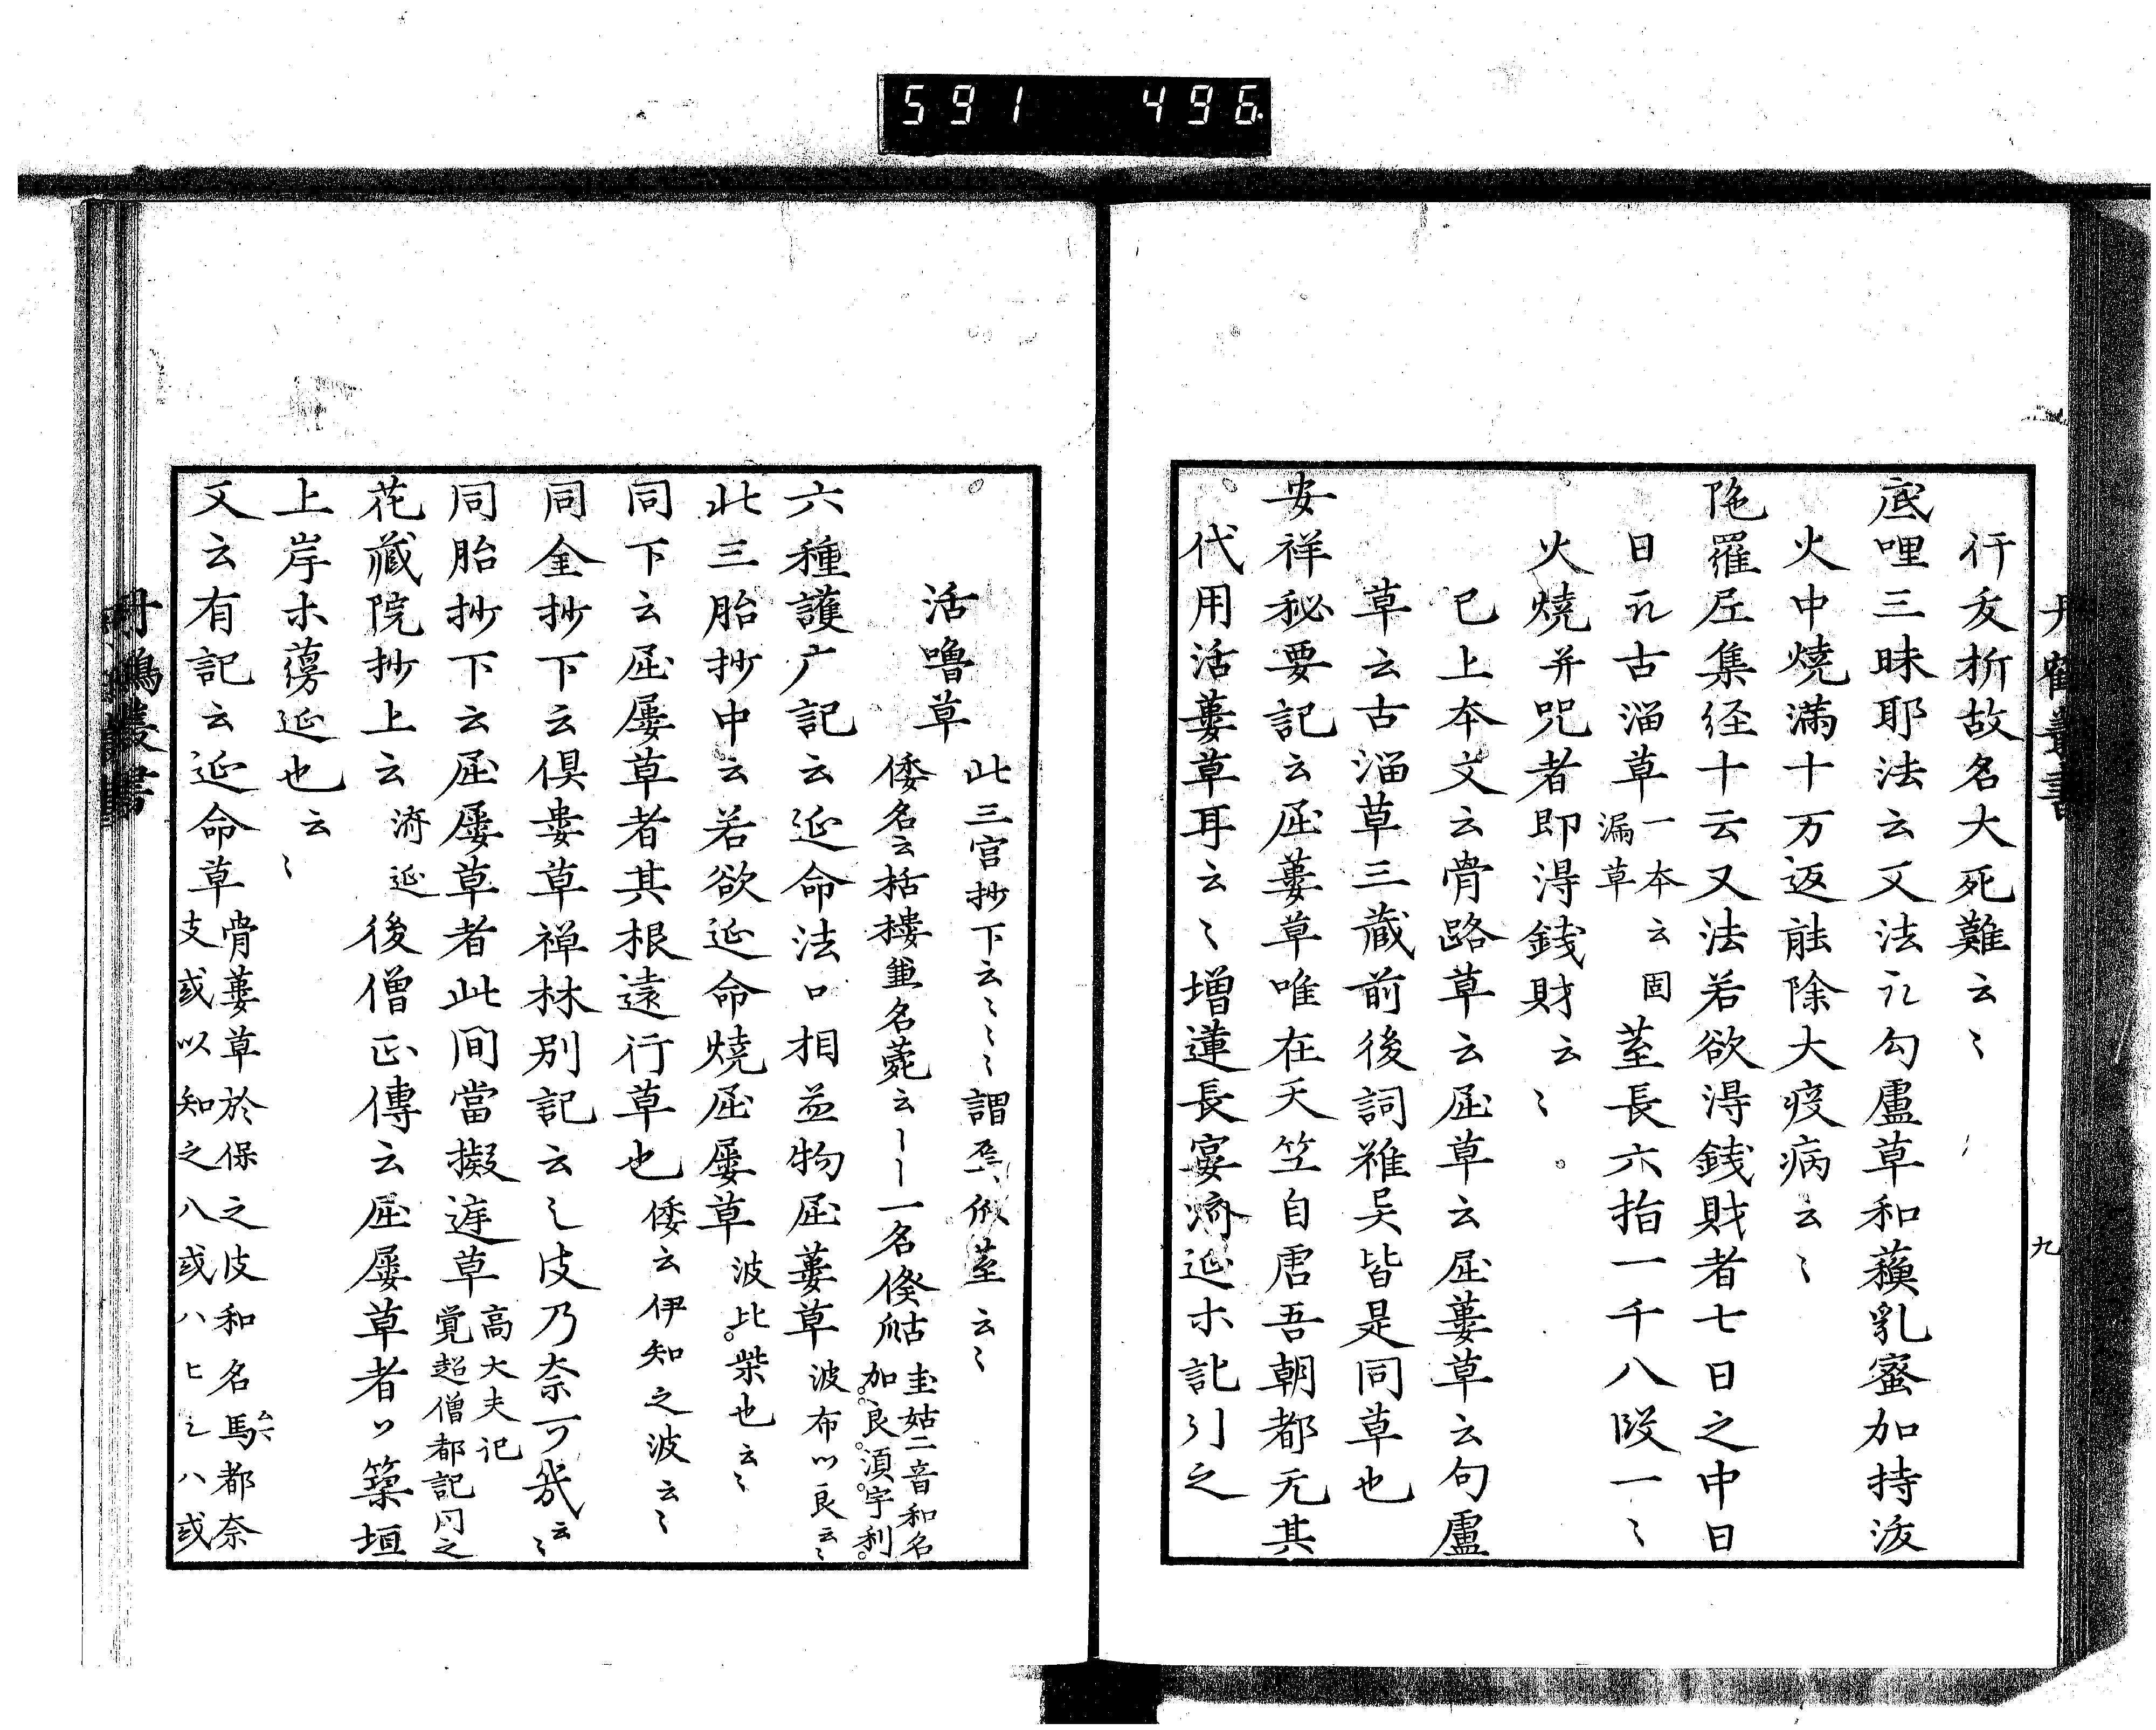 591 496
丹鶴叢書
九
行友折故名大死難云〻
底哩三昧耶法云又法勾盧草和蘓乳蜜加持
火中燒滿十万返能除大疫病云〻
陁羅尼集経十云又法若欲淂錢財者七日之中日
日古湽草一本云固漏草茎長六指一千八段一〻
火燒并咒者即淂錢財云〻
已上本文云骨路草云屈草云屈蔞草云句盧
草云古湽草三藏前後詞雖吴皆是同草也
安祥秘要記云屈蔞草唯在天竺自唐吾朝都无其
代用活蔞草耳云〻增蓮長宴済延尓訛引之
此三宫抄下云〻〻〻謂茎云〻
活嚕草
倭名云栝樓並名薨云一名㑋㼋圭姑二音和名加良湏宇利
六種護广記云延命法口相並物屈蔞草波布以良云〻
此三胎抄中云若欲延命燒屈屢草波比柴也云〻
同下云屈屢草者其根遠行草也倭云伊知之波云〻
同金抄下云倶婁草禅林別記云之皮乃奈可幾云〻
同胎抄下云屈屢草者此間當擬莛草高大夫記覚超僧都記同之
花藏院抄上云済延後僧正傳云屈屢草者以築垣
上岸尓蕩延也云〻
又云有記云延命草骨蔞草於保之皮和名馬都奈
支或以知之八或八ヒ之八或
丹鶴叢書